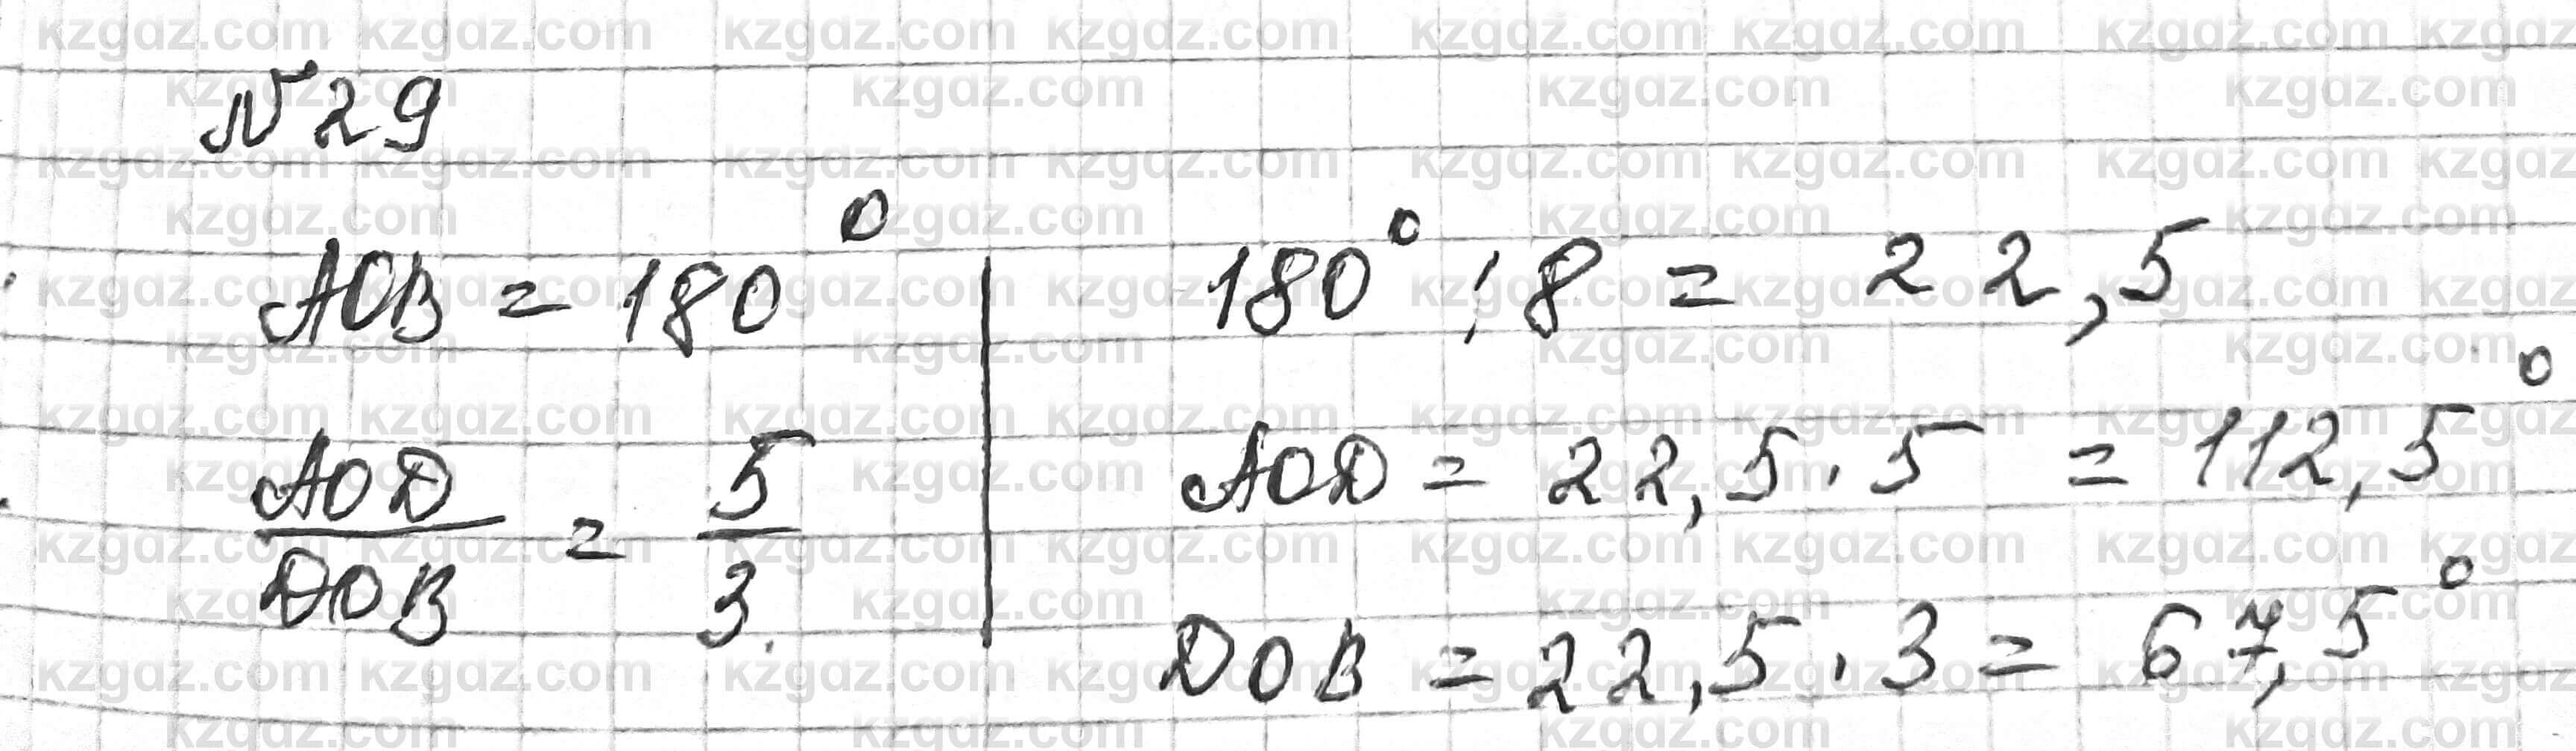 №29
AOB = 180°
AOD/DOB = 5/3.
180° : 8 = 22,5
AOD = 22,5 · 5 = 112,5°
DOB = 22,5 · 3 = 67,5°
kzgdz.com